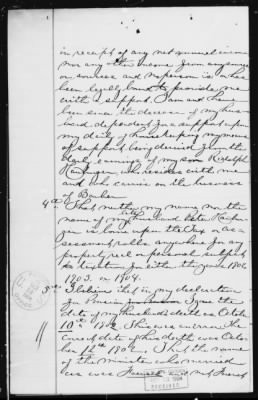 in receipt of any net annual income
nor any other income from any source
or sources and no person is or has
been legally bound to provide me
with a support. I am and have
been since the decease of my hus
band dependent for a support upon
my duty of housekeeping my means
of support being derived from the
daily earnings of my son Rudolph
who resides with me
and who carries on the business
of Barber
4th That neither my name nor the
name of my late husband
is borne upon the Tax or as-
sessment rolls anywhere for any
property real or personal subject
to taxation for either the years 1902
1903 or 1904.
5th I believe that in my declaration
for Pension I gave the
date of my husband's death as Octo
10th 1902. This was an error The
correct date of his death was Octo
ber 12th 1902. That the name
of the minister who married
us was and not
RECEIVED